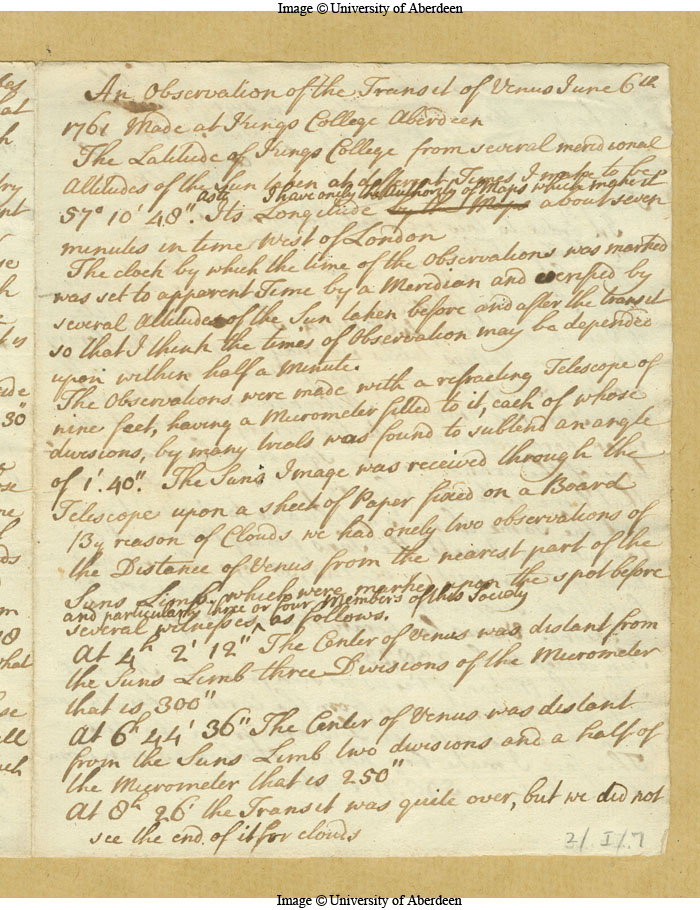 Image © University of Aberdeen
An Observation of the Transit of Venus June 6th
1761 Made at Kings College Aberdeen
The Latitude of Kings College from several meridional
Altitudes of the Sun taken at different Times I make to be
as to I have only the authority of Maps which make it
57° 10' 48". Its Longitude by the Maps about seven
minutes in time West of London
The clock by which the time of the Observations was marked
was set to apparent Time by a Meridian and verified by
several Altitudes of the Sun taken before and after the transit
so that I think the times of Observation may be depended
upon within half a Minute.
The Observations were made with a refracting Telescope of
nine feet, having a Micrometer fitted to it, each of whose
divisions, by many trials was found to subtend an angle
of 1'. 40". The Suns Image was received through the
Telescope upon a sheet of Paper fixed on a Board
By reason of Clouds we had onely two observations of
the Distance of Venus from the nearest part of the
Suns Limb, which were marked upon the spot before
and particularly three or four Members of this Society
several witnesses, ^ as follows.
At 4h 2' 12" The Center of Venus was distant from
the Suns Limb three Divisions of the Micrometer
that is 300"
At 6h 44' 36" The Center of Venus was distant
from the Suns Limb two divisions and a half of
the Micrometer that is 250"
At 8h 26' the Transit was quite over, but we did not
see the end of it for clouds
2/ I/.7
30"
Image © University of Aberdeen